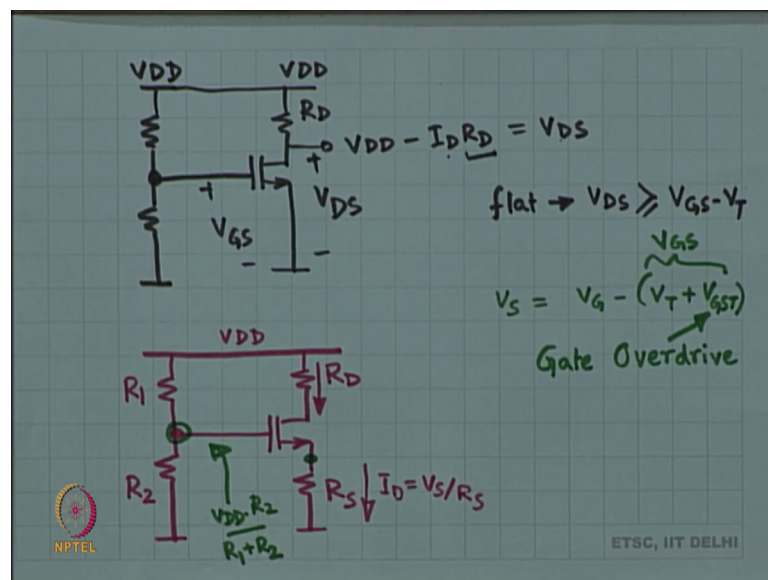 VDD VDD
RD
VDD - IDRD = VDS
+ +
VGS VDS
- -
flat → VDS ⩾ VGS-VT
VGS
VS = VG - (VT + VGST)
Gate Overdrive
VDD
R1 RD
R2 RS ID = VS/RS
VDD·R2
R1+R2
NPTEL
ETSC, IIT DELHI